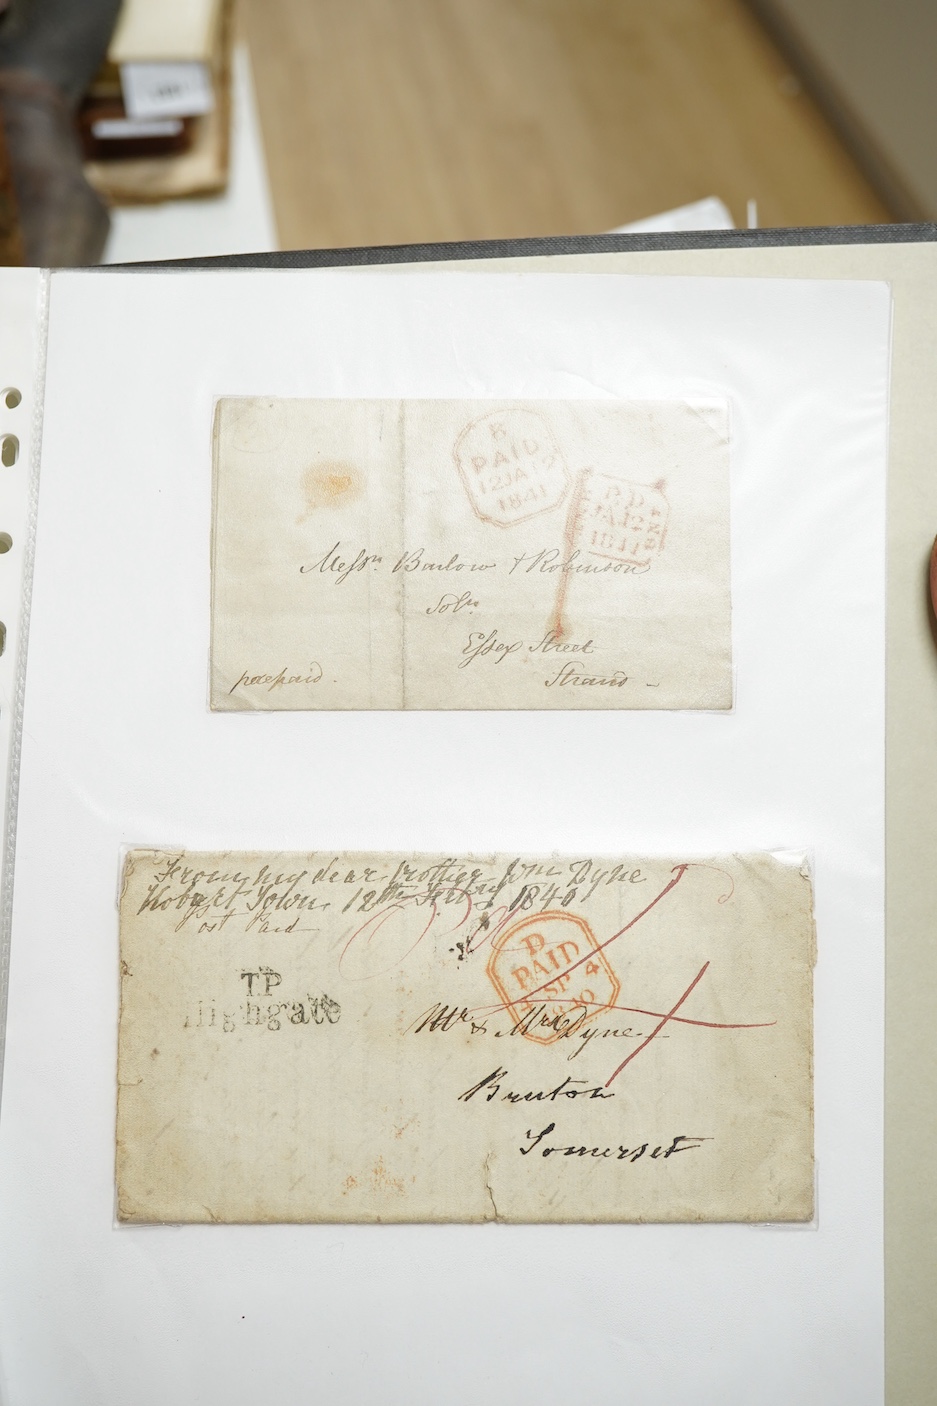 K
PAID
12JA12
1841
P.D.
JA.12
1841
Messrs. Barlow & Robinson
Solrs.
Essex Street
Strand
prepaid.
From my dear brother Wm Dyne
Hobart Town 12th 1840
Post Paid
T.P
Highgate
P
PAID
SP 4
1840
Mr & Mrs Dyne
Bruton
Somerset